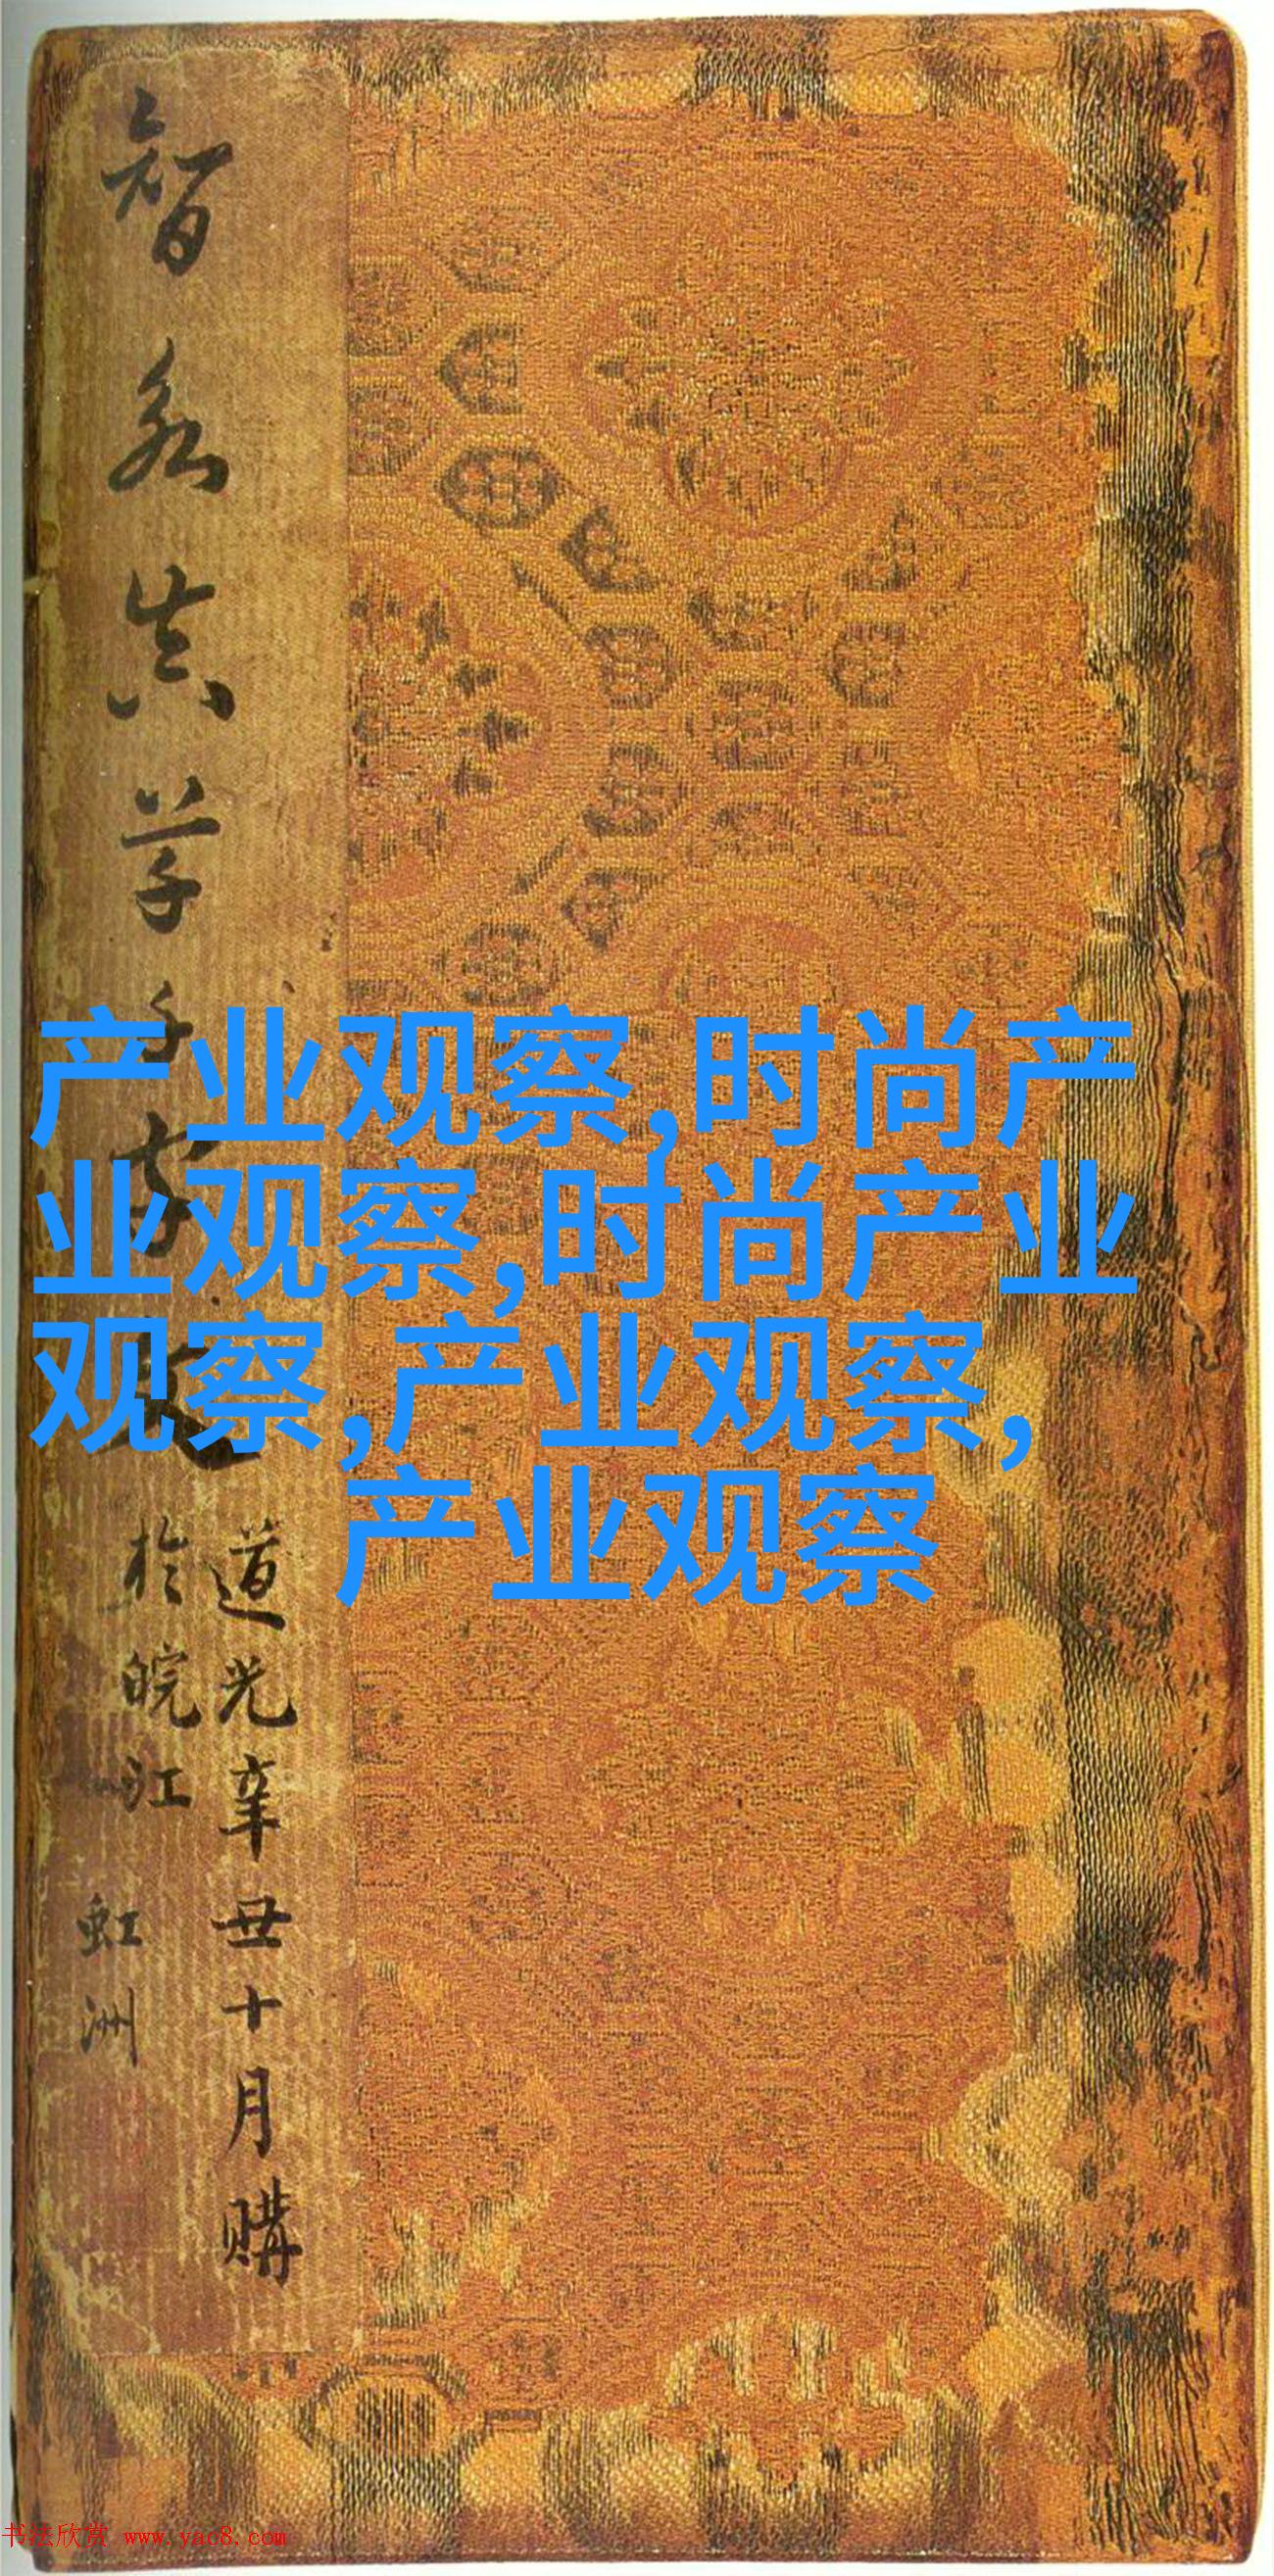 智永真草千字文
道光辛丑十月購
於皖江
虹洲
产业观察,时尚产
业观察,时尚产业
观察,产业观察,
产业观察
书法欣赏 www.yac8.com